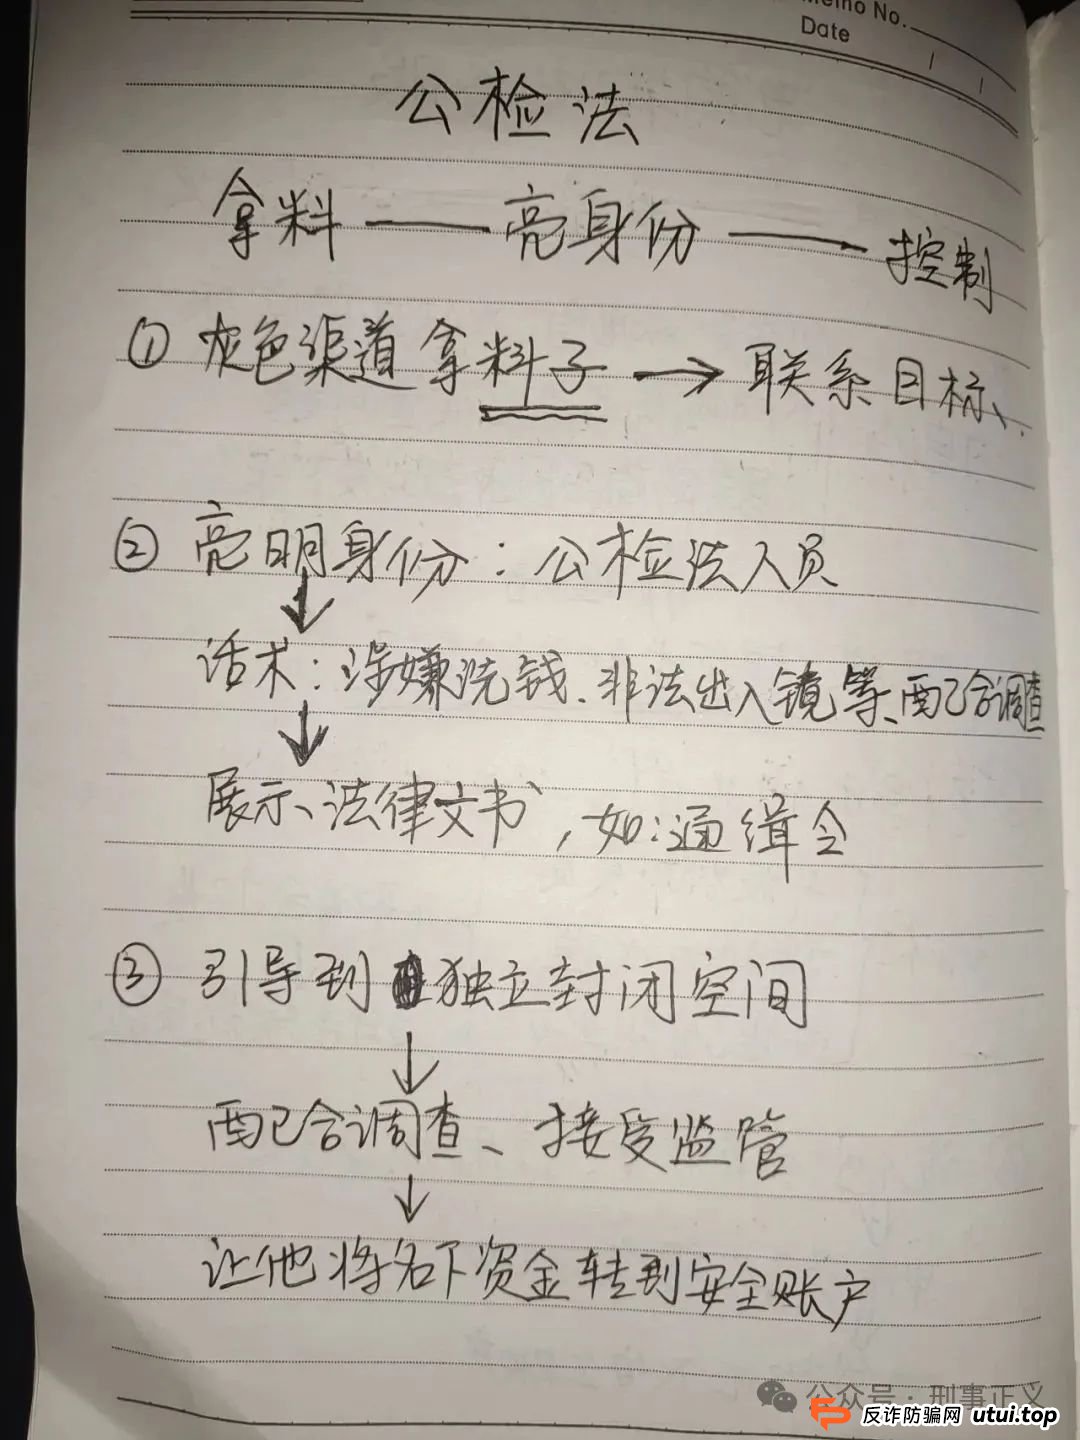 Memo No.
Date
公检法
拿料——亮身份——控制
① 灰色渠道拿料子→联系目标、
② 亮明身份：公检法人员
↓
话术：涉嫌洗钱、非法出入镜等、配合调查
↓
展示、法律文书，如：通缉令
③ 引导到独立封闭空间
↓
配合调查、接受监管
↓
让他将名下资金转到安全账户
公众号·刑事正义
反诈防骗网 utui.top